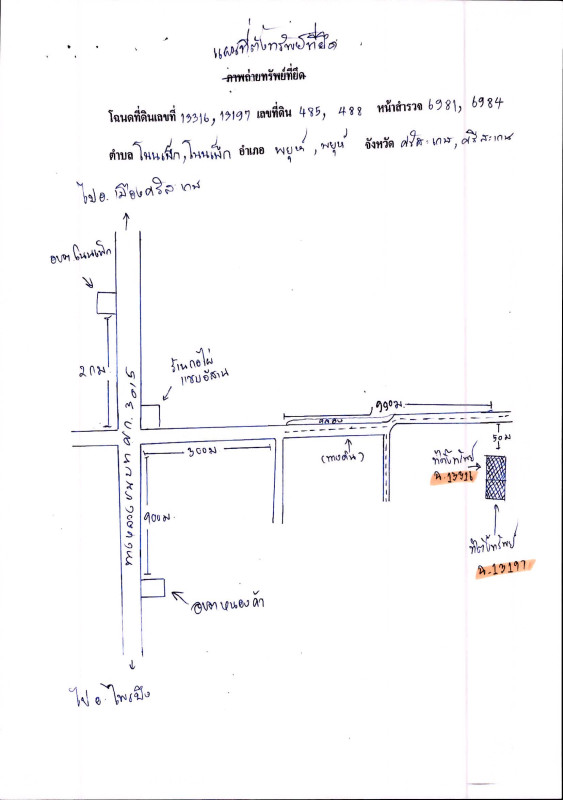 แผนที่ตั้งทรัพย์ที่ยึด
ภาพถ่ายทรัพย์ที่ยึด
โฉนดที่ดินเลขที่ 13316, 13197 เลขที่ดิน 485, 488 หน้าสำรวจ 6981, 6984
ตำบล โนนเพ็ก, โนนเพ็ก อำเภอ พยุห์, พยุห์ จังหวัด ศรีสะเกษ, ศรีสะเกษ
ไป อ. เมืองศรีสะเกษ
อบต โนนเพ็ก
2 กม
ร้านกอไผ่
แซบอีสาน
990 ม.
คลอง
300 ม
(ทางดิน)
50 ม
ที่ตั้งทรัพย์
ฉ.13316
900 ม.
ที่ตั้งทรัพย์
ฉ.13197
อบต หนองค้า
ไป อ. ไพรบึง